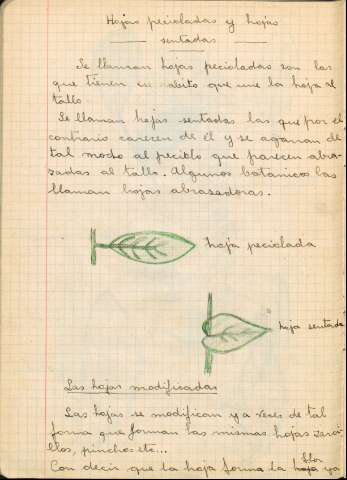 Hojas pecioladas y hojas
sentadas
Se llaman hojas pecioladas son las
que tienen un rabito que une la hoja al
tallo
Se llaman hojas sentadas las que por el
contrario carecen de él y se agarran de
tal modo al peciolo que parecen abra-
zadas al tallo. Algunos botanicos las
llaman hojas abrazadoras.
hoja peciolada
hoja sentada
Las hojas modificadas
Las hojas se modifican y a veces de tal
forma que forman las mismas hojas zarci
llos, pinchos etc...
flor
Con decir que la hoja forma la hoja ya